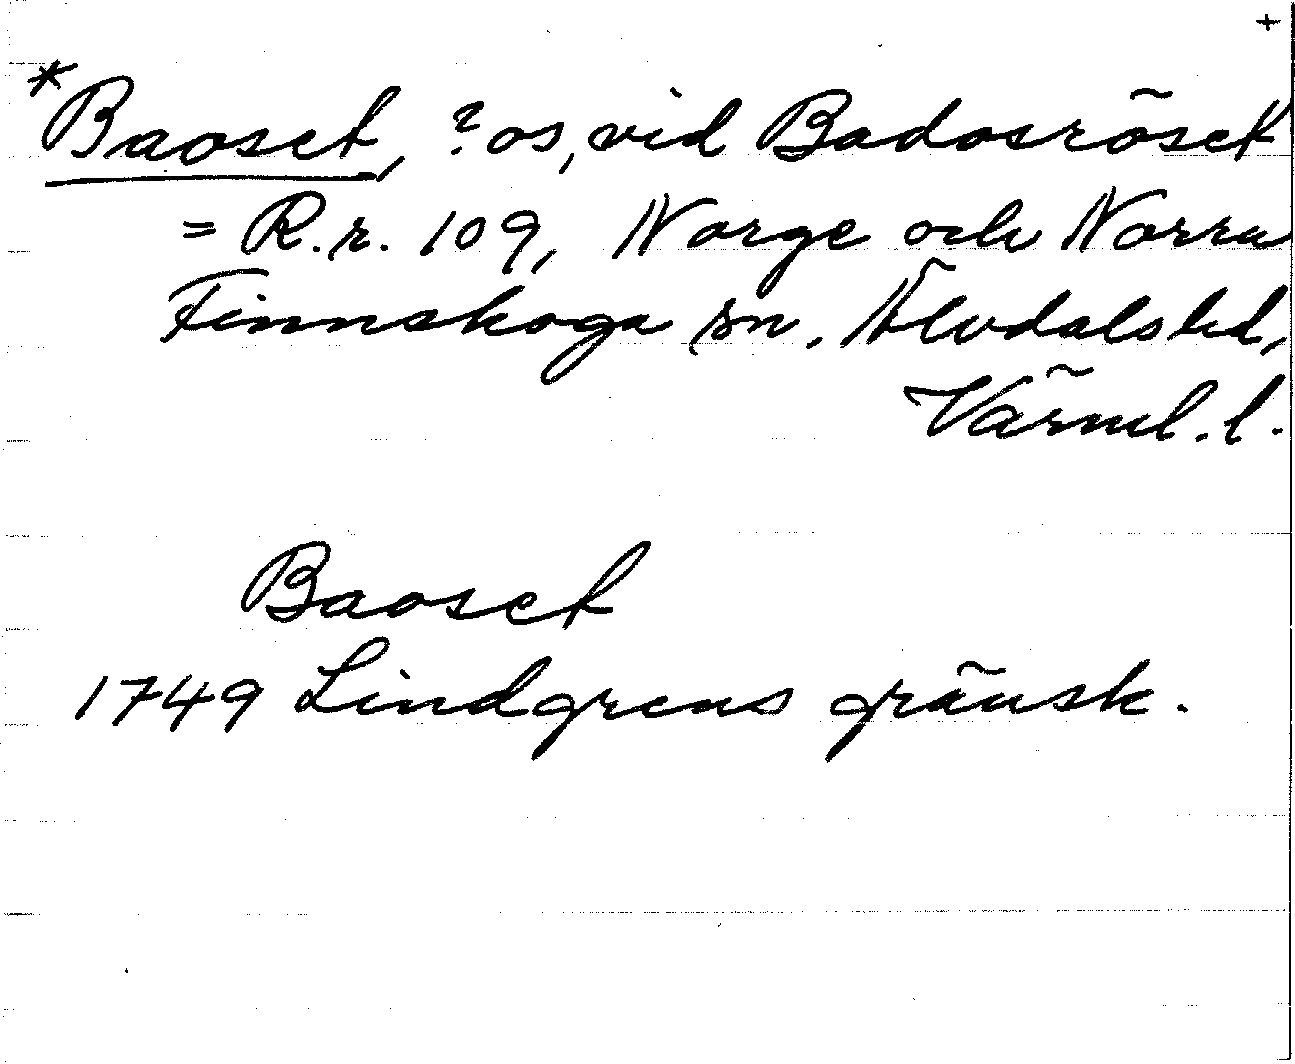 +
*Baoset, ? os, vid Badosröset
= R.r. 109, Norge och Norra
Finnskoga sn. Älvdals hd,
Värml. l.
Baoset
1749 Lindgrens gränsk.